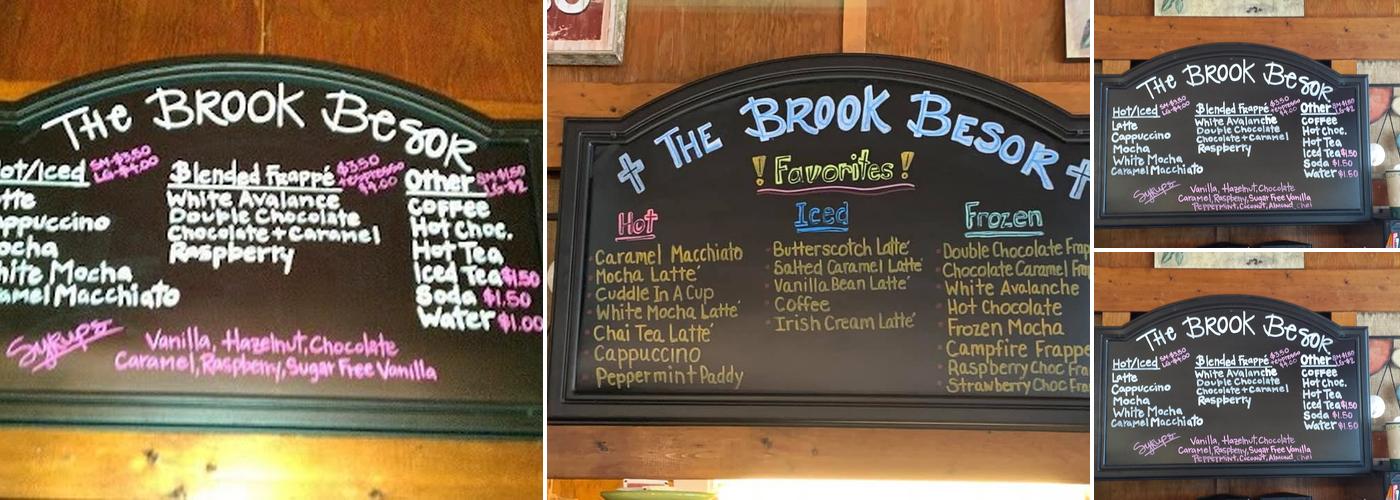 THE BROOK BESOR
Hot/Iced SM-$3.50 LG-$4.00
Blended Frappé $3.50 +espresso $4.00
White Avalance
Double Chocolate
Chocolate + Caramel
Raspberry
Other SM-$1.50 LG-$2
COFFEE
Hot Choc.
Hot Tea
Iced Tea $1.50
Soda $1.50
Water $1.00
Mocha
White Mocha
Caramel Macchiato
Syrups
Vanilla, Hazelnut, Chocolate
Caramel, Raspberry, Sugar Free Vanilla
THE BROOK BESOR
! Favorites !
Hot
Caramel Macchiato
Mocha Latte'
Cuddle In A Cup
White Mocha Latte'
Chai Tea Latte'
Cappuccino
Peppermint Paddy
Iced
Butterscotch Latte'
Salted Caramel Latte'
Vanilla Bean Latte'
Coffee
Irish Cream Latte'
Frozen
Double Chocolate Frap
Chocolate Caramel Fra
White Avalanche
Hot Chocolate
Frozen Mocha
Campfire Frappe
Raspberry Choc Fra
Strawberry Choc Fra
THE BROOK BESOR
Hot/Iced SM-$3.50 LG-$4.00
Latte
Cappuccino
Mocha
White Mocha
Caramel Macchiato
Blended Frappé $3.50 +espresso $4.00
White Avalanche
Double Chocolate
Chocolate + Caramel
Raspberry
Other SM-$1.50 LG-$2
COFFEE
Hot Choc.
Hot Tea
Iced Tea $1.50
Soda $1.50
Water $1.50
Syrups
Vanilla, Hazelnut, Chocolate
Caramel, Raspberry, Sugar Free Vanilla
Peppermint, Coconut, Almond,
THE BROOK BESOR
Hot/Iced SM-$3.50 LG-$4.00
Latte
Cappuccino
Mocha
White Mocha
Caramel Macchiato
Blended Frappé $3.50 +espresso $4.00
White Avalanche
Double Chocolate
Chocolate + Caramel
Raspberry
Other SM-$1.50 LG-$2
COFFEE
Hot Choc.
Hot Tea
Iced Tea $1.50
Soda $1.50
Water $1.50
Syrups
Vanilla, Hazelnut, Chocolate
Caramel, Raspberry, Sugar Free Vanilla
Peppermint, Coconut, Almond,